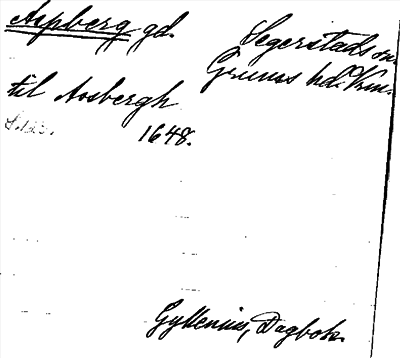 Aspberg gd.
Segerstads sn.
Grums hd. Vrm.
til Aosbergh
1648.
Gyllenius, Dagbok.